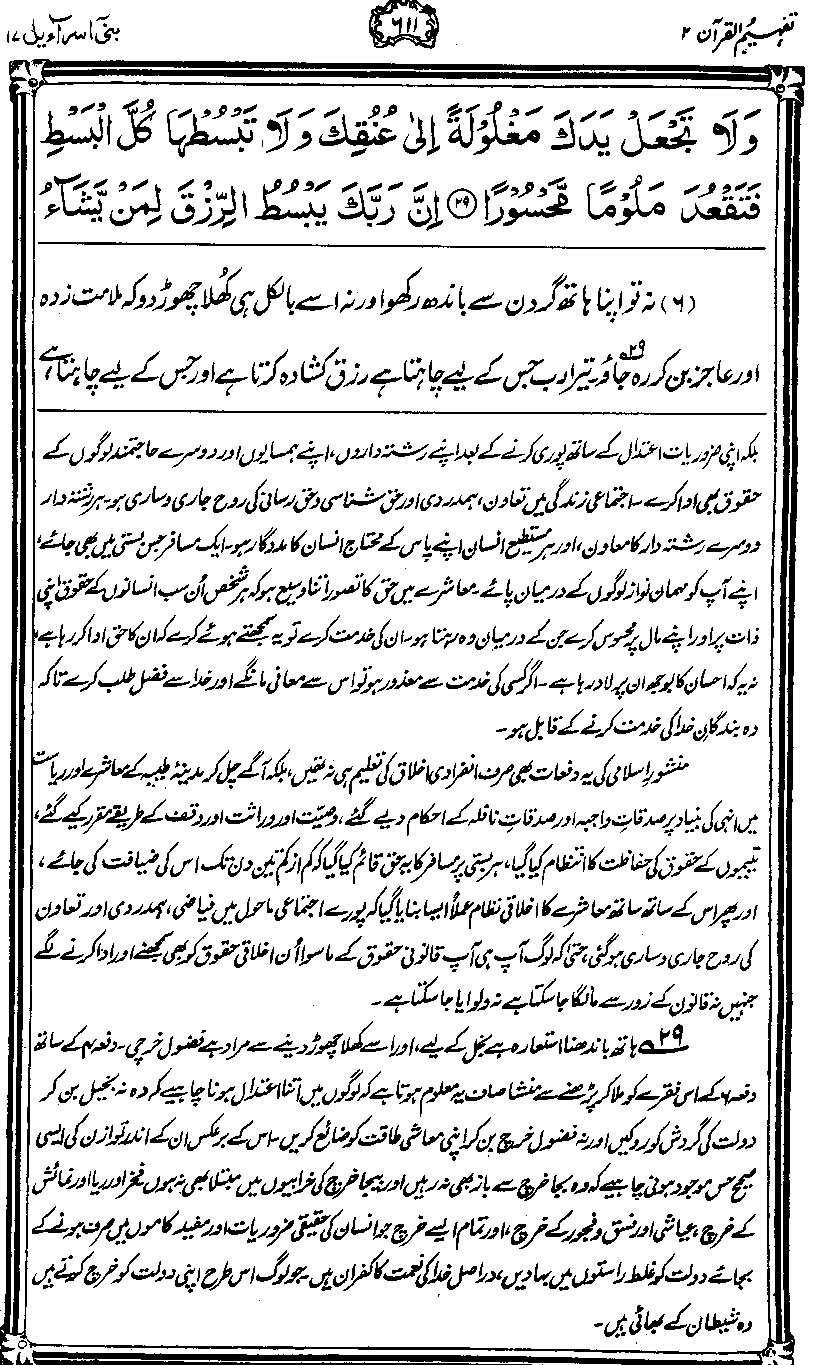 تفہیم القرآن ۲
۶۱۱
بنی اسرآءیل ۱۷
وَلَا تَجْعَلْ يَدَكَ مَغْلُوْلَةً اِلٰى عُنُقِكَ وَلَا تَبْسُطْهَا كُلَّ الْبَسْطِ
فَتَقْعُدَ مَلُوْمًا مَّحْسُوْرًا ﴿۲۹﴾ اِنَّ رَبَّكَ يَبْسُطُ الرِّزْقَ لِمَنْ يَّشَآءُ
(۶) نہ تو اپنا ہاتھ گردن سے باندھ رکھو اور نہ اسے بالکل ہی کُھلا چھوڑ دو کہ ملامت زدہ
اور عاجز بن کر رہ جاؤ۔۲۹ تیرا رب جس کے لیے چاہتا ہے رزق کشادہ کرتا ہے اور جس کے لیے چاہتا ہے
بلکہ اپنی ضروریات اعتدال کے ساتھ پوری کرنے کے بعد اپنے رشتہ داروں، اپنے ہمسایوں اور دوسرے حاجتمند لوگوں کے
حقوق بھی ادا کرے۔ اجتماعی زندگی میں تعاون، ہمدردی اور حق شناسی و حق رسانی کی روح جاری و ساری ہو۔ ہر رشتہ دار
دوسرے رشتہ دار کا معاون، اور ہر مستطیع انسان اپنے پاس کے محتاج انسان کا مددگار ہو۔ ایک مسافر جس بستی میں بھی جائے،
اپنے آپ کو مہمان نواز لوگوں کے درمیان پائے۔ معاشرے میں حق کا تصور اتنا وسیع ہو کہ ہر شخص اُن سب انسانوں کے حقوق اپنی
ذات پر اور اپنے مال پر محسوس کرے جن کے درمیان وہ رہتا ہو۔ ان کی خدمت کرے تو یہ سمجھتے ہوئے کرے کہ ان کا حق ادا کر رہا ہے،
نہ یہ کہ احسان کا بوجھ ان پر لاد رہا ہے۔ اگر کسی کی خدمت سے معذور ہو تو اس سے معافی مانگے اور خدا سے فضل طلب کرے تاکہ
وہ بندگانِ خدا کی خدمت کرنے کے قابل ہو۔
منشورِ اسلامی کی یہ دفعات بھی صرف انفرادی اخلاق کی تعلیم ہی نہ تھیں، بلکہ آگے چل کر مدینۂ طیبہ کے معاشرے اور ریاست
میں انہی کی بنیاد پر صدقاتِ واجبہ اور صدقاتِ نافلہ کے احکام دیے گئے، وصیّت اور وراثت اور وقف کے طریقے مقرر کیے گئے،
یتیموں کے حقوق کی حفاظت کا انتظام کیا گیا، ہر بستی پر مسافر کا یہ حق قائم کیا گیا کہ کم از کم تین دن تک اس کی ضیافت کی جائے،
اور پھر اس کے ساتھ ساتھ معاشرے کا اخلاقی نظام عملاً ایسا بنایا گیا کہ پورے اجتماعی ماحول میں فیاضی، ہمدردی اور تعاون
کی روح جاری و ساری ہو گئی، حتّٰی کہ لوگ آپ ہی آپ قانونی حقوق کے ماسوا اُن اخلاقی حقوق کو بھی سمجھنے اور ادا کرنے لگے
جنہیں نہ قانون کے زور سے مانگا جا سکتا ہے نہ دلوایا جا سکتا ہے۔
۲۹ ہاتھ باندھنا استعارہ ہے بخل کے لیے، اور اسے کھلا چھوڑ دینے سے مراد ہے فضول خرچی۔ دفعہ ۴ کے ساتھ
دفعہ ۶ کے اس فقرے کو ملا کر پڑھنے سے منشا صاف یہ معلوم ہوتا ہے کہ لوگوں میں اتنا اعتدال ہونا چاہیے کہ وہ نہ بخیل بن کر
دولت کی گردش کو روکیں اور نہ فضول خرچ بن کر اپنی معاشی طاقت کو ضائع کریں۔ اس کے برعکس ان کے اندر توازن کی ایسی
صحیح حس موجود ہونی چاہیے کہ وہ بجا خرچ سے باز بھی نہ رہیں اور بیجا خرچ کی خرابیوں میں مبتلا بھی نہ ہوں فخر اور ریا اور نمائش
کے خرچ، عیاشی اور فسق و فجور کے خرچ، اور تمام ایسے خرچ جو انسان کی حقیقی ضروریات اور مفید کاموں میں صرف ہونے کے
بجائے دولت کو غلط راستوں میں بہا دیں، دراصل خدا کی نعمت کا کفران ہیں۔ جو لوگ اس طرح اپنی دولت کو خرچ کرتے ہیں
وہ شیطان کے بھائی ہیں۔